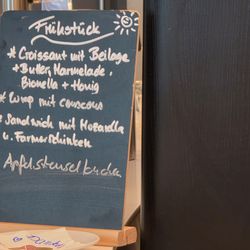 Frühstück
* Croissant mit Beilage
+ Butter, Marmelade,
Bionella + Honig
* Wrap mit couscous
* Sandwich mit Mozarella
u. Farmerschinken
Apfelstreuselkuchen